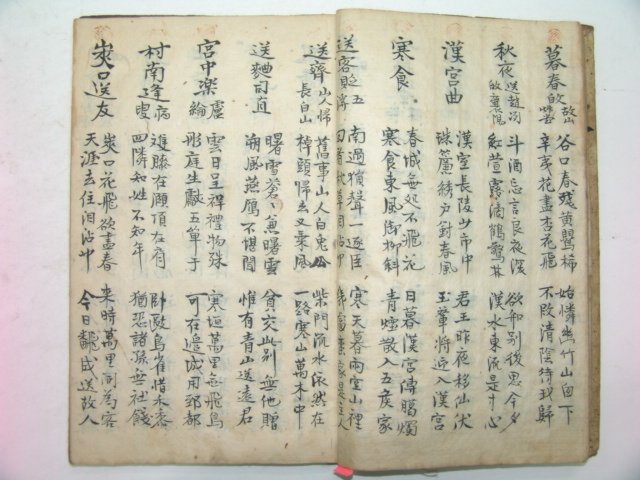 暮春故山草堂
谷口春殘黃鸎稀
辛夷花盡杏花飛
始憐幽竹山囱下
不改清陰待我歸
秋夜送趙冽歸襄陽
斗酒忘言良夜深
紅萱露滴鵲驚林
欲知別後思今夕
漢水東流是寸心
漢宮曲
漢室長陵小市中
珠簾綉戶對春風
君王昨夜移仙仗
玉輦將迎入漢宮
寒食
春城無処不飛花
寒食東風御柳斜
日暮漢宮傳臈燭
青烟散入五侯家
送客貶五溪
南過猿聲一逐臣
回看秋草泪沾巾
寒天暮雨空山裡
幾處蠻家是主人
送齊山人歸長白山
舊事山人白兔公
掉頭歸去又乘風
柴門流水依然在
一路寒山萬木中
送麯司直
曙雪蒼〻兼曙雲
朔風燕鴈不堪聞
貧交此別無他贈
惟有青山送遠君
宮中樂 盧綸
雲日呈祥禮物殊
彤庭生獻五單于
寒垣萬里無飛鳥
可在邊城用郅都
村南逢病叟
膝在頤頂在肩
四隣知姓不知年
臥敺鳥雀惜禾黍
猶恐諸孫無社錢
峽口送友
峽口花飛欲盡春
天涯去住泪沾巾
來時萬里同為客
今日飜成送故人